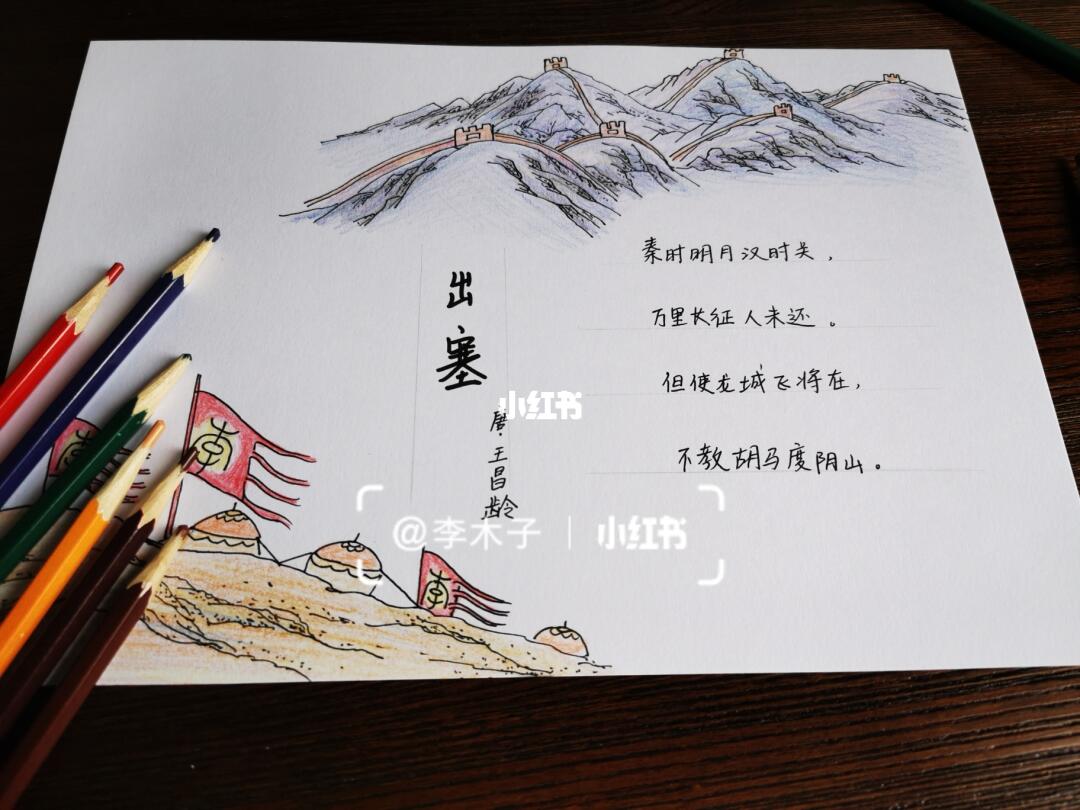 出塞
唐·王昌龄
秦时明月汉时关，
万里长征人未还。
但使龙城飞将在，
不教胡马度阴山。
小红书
@李木子 | 小红书